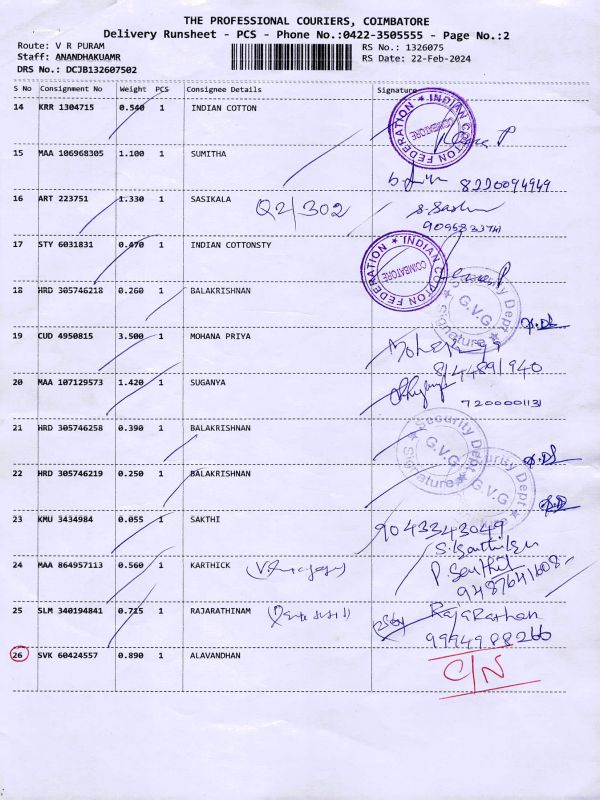 THE PROFESSIONAL COURIERS, COIMBATORE
Delivery Runsheet - PCS - Phone No.:0422-3505555 - Page No.:2
Route: V R PURAM
RS No.: 1326075
Staff: ANANDHAKUAMR
RS Date: 22-Feb-2024
DRS No.: DCJB132607502
S No Consignment No Weight PCS Consignee Details Signature
14 KRR 1304715 0.540 1 INDIAN COTTON
INDIAN COTTON FEDERATION COIMBATORE
15 MAA 106968305 1.100 1 SUMITHA
8220094949
16 ART 223751 1.330 1 SASIKALA Q2/302
17 STY 6031831 0.470 1 INDIAN COTTONSTY
INDIAN COTTON FEDERATION COIMBATORE
18 HRD 305746218 0.260 1 BALAKRISHNAN
Security Dept G.V.G Signature
19 CUD 4950815 3.500 1 MOHANA PRIYA
20 MAA 107129573 1.420 1 SUGANYA
7200001131
21 HRD 305746258 0.390 1 BALAKRISHNAN
Security Dept G.V.G Signature
22 HRD 305746219 0.250 1 BALAKRISHNAN
Dept G.V.G
23 KMU 3434984 0.055 1 SAKTHI
9043343049
24 MAA 864957113 0.560 1 KARTHICK
P. Senthil
25 SLM 340194841 0.715 1 RAJARATHINAM
9994988266
26 SVK 60424557 0.890 1 ALAVANDHAN
C/N